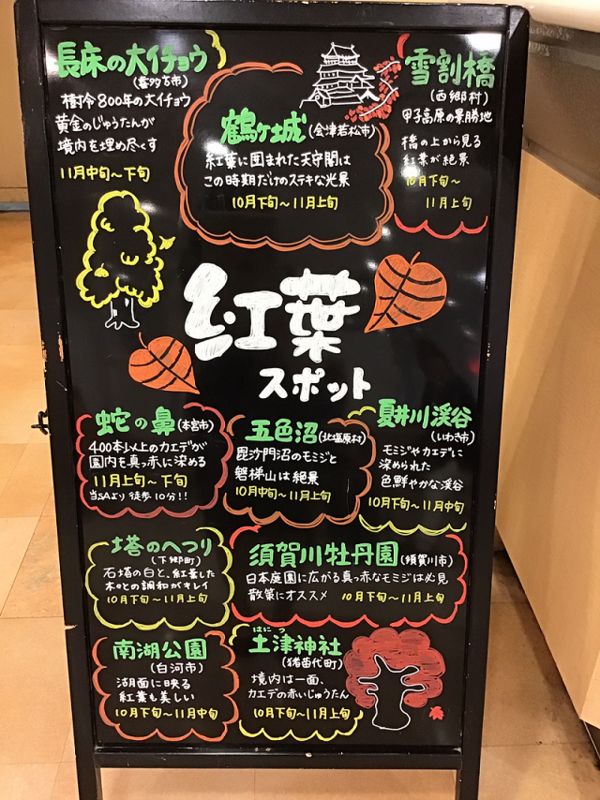 長床の大イチョウ
(喜多方市)
樹令800年の大イチョウ
黄金のじゅうたんが
境内を埋め尽くす
11月中旬〜下旬
鶴ヶ城(会津若松市)
紅葉に囲まれた天守閣は
この時期だけのステキな光景
10月下旬〜11月上旬
雪割橋
(西郷村)
甲子高原の景勝地
橋の上から見る
紅葉が絶景
10月下旬〜
11月上旬
紅葉
スポット
蛇の鼻(本宮市)
400本以上のカエデが
園内を真っ赤に染める
11月上旬〜下旬
当SAより徒歩10分!!
五色沼(北塩原村)
毘沙門沼のモミジと
磐梯山は絶景
10月中旬〜11月上旬
夏井川渓谷
(いわき市)
モミジやカエデに
染められた
色鮮やかな渓谷
10月下旬〜11月中旬
塔のへつり
(下郷町)
石塔の白と、紅葉した
木々との調和がキレイ
10月下旬〜11月上旬
須賀川牡丹園(須賀川市)
日本庭園に広がる真っ赤なモミジは必見
散策にオススメ 10月下旬〜11月上旬
南湖公園
(白河市)
湖面に映る
紅葉も美しい
10月下旬〜11月中旬
はにつ
土津神社
(猪苗代町)
境内は一面、
カエデの赤いじゅうたん
10月下旬〜11月上旬